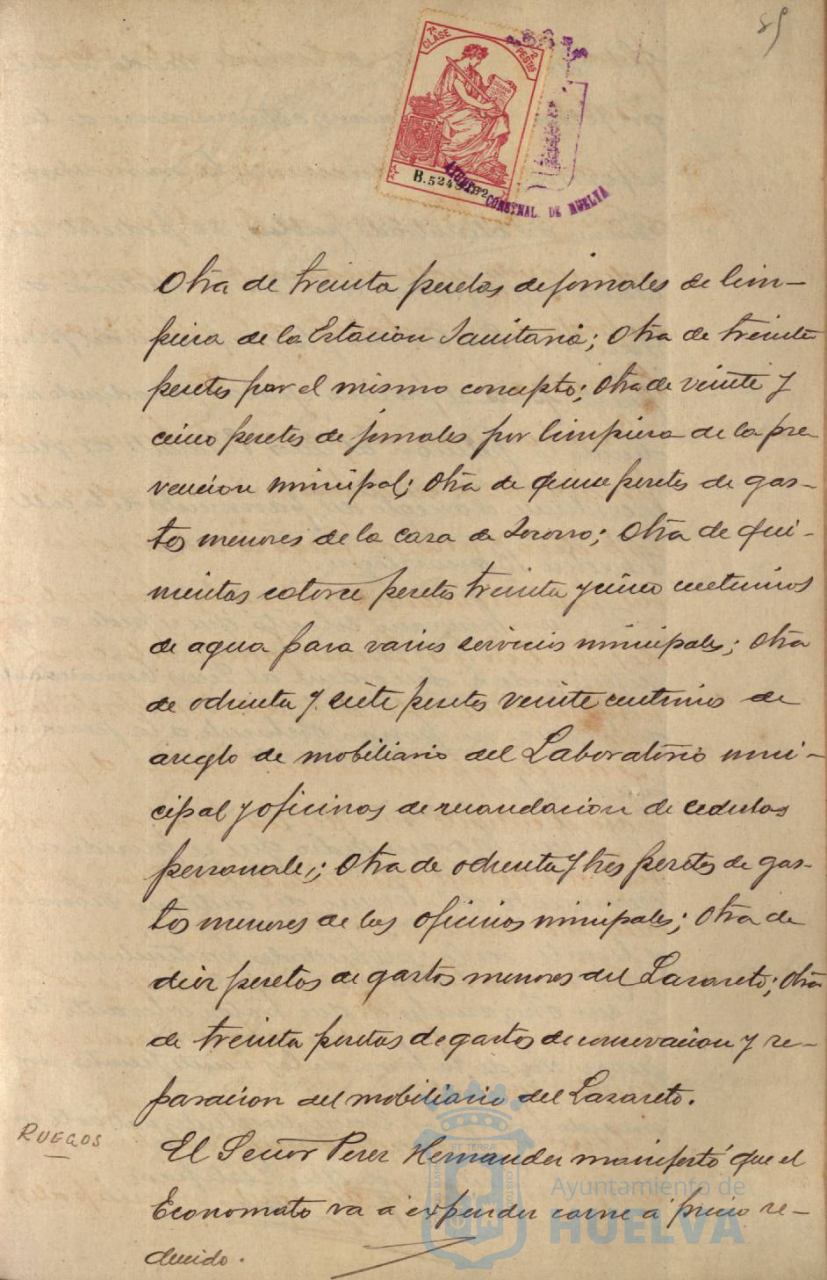 89
7ª CLASE
2 PESTAS
B.524
AYUNTº CONSTNAL. DE HUELVA
Otra de treinta pesetas de jornales de lim-
pieza de la Estacion Sanitaria; Otra de treinta
pesetas por el mismo concepto; Otra de veinte y
cinco pesetas de jornales por limpieza de la pre
vencion municipal; Otra de quince pesetas de gas-
tos menores de la casa de Socorro; Otra de qui-
nientas catorce pesetas treinta y cinco centimos
de agua para varios servicios municipales; Otra
de ochenta y siete pesetas veinte centimos de
arreglo de mobiliario del Laboratorio muni-
cipal y oficinas de recaudacion de cedulas
personales; Otra de ochenta y tres pesetas de gas-
tos menores de las oficinas municipales; Otra de
diez pesetas de gastos menores del Lazareto; Otra
de treinta pesetas de gastos de conservacion y re-
paracion del mobiliario del Lazareto.
RUEGOS
El Señor Perez Hernandez manifestó que el
Economato va a expender carne a precio re-
ducido.
Ayuntamiento de
HUELVA